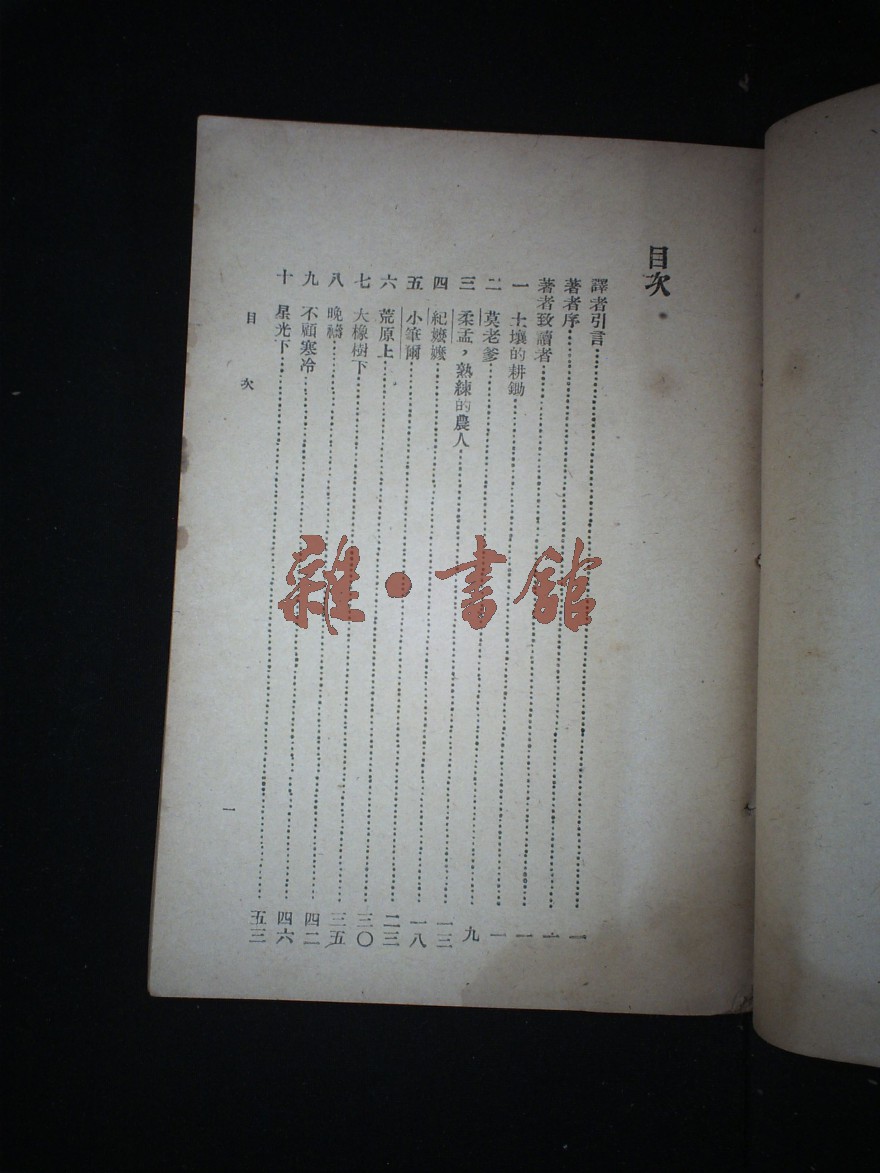 目次
譯者引言……一
著者序……一
著者致讀者……一
一 土壤的耕鋤……一
二 莫老爹……九
三 柔孟，熟練的農人……一三
四 紀嬤嬤……一八
五 小筆爾……二三
六 荒原上……三〇
七 大橡樹下……三五
八 晚禱……四二
九 不顧寒冷……四六
十 星光下……五三
目次
一
雜·書館